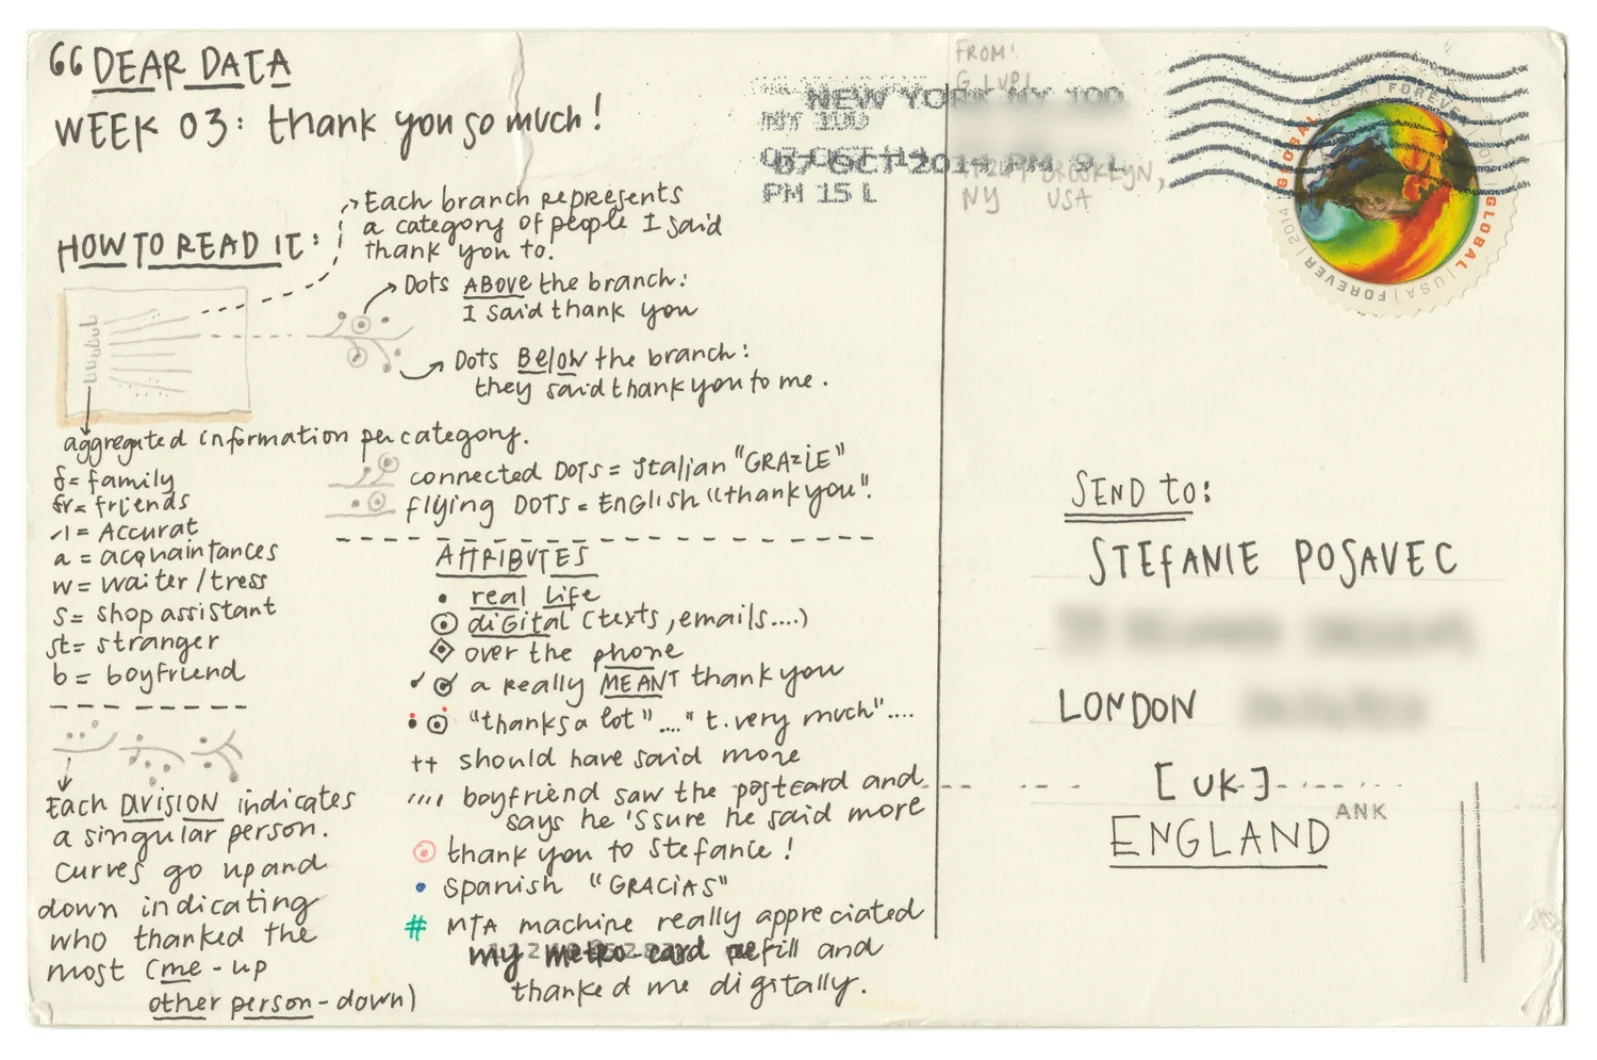 66 DEAR DATA
WEEK 03: thank you so much!
HOW TO READ IT:
Each branch represents
a category of people I said
thank you to.
Dots ABOVE the branch:
I said thank you
Dots BELOW the branch:
they said thank you to me.
aggregated information per category.
f= family
fr= friends
= Accurat
a = acquaintances
w= waiter/tress
s= shop assistant
st= stranger
b = boyfriend
connected DOTS = Italian "GRAZIE"
flying DOTS = ENGlish "thank you".
Each DIVISION indicates
a singular person.
Curves go up and
down indicating
who thanked the
most (me - up
other person - down)
ATTRIBUTES
real life
diGital (texts, emails....)
over the phone
a really MEANT thank you
"thanks a lot" ...." t. very much"....
++ should have said more
boyfriend saw the postcard and
says he 's sure he said more
thank you to stefanie!
spanish "GRACIAS"
# MTA machine really appreciated
my metro-card refill and
thanked me digitally.
FROM:
G. LUPI
BROOKLYN,
NY USA
NEW YORK NY 100
07 OCT 2014 PM 9 L
PM 15 L
GLOBAL USA FOREVER 2014
GLOBAL USA FOREVER 2014
SEND to:
STEFANIE POSAVEC
LONDON
[UK]
ENGLAND
ANK